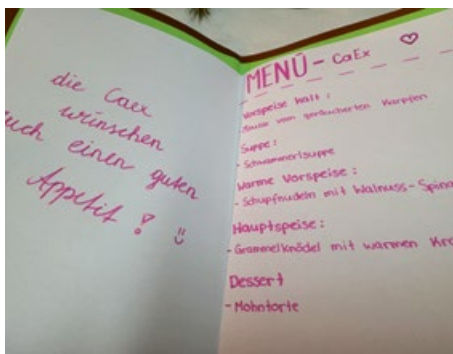 die Caex
wünschen
euch einen guten
Appetit! :)
MENÜ - CaEx ♡
Vorspeise kalt:
vom geräucherten Karpfen
Suppe:
- Schwammerlsuppe
Warme Vorspeise:
- Schupfnudeln mit Walnuss-Spina
Hauptspeise:
- Grammelknödel mit warmen Kra
Dessert
- Mohntorte